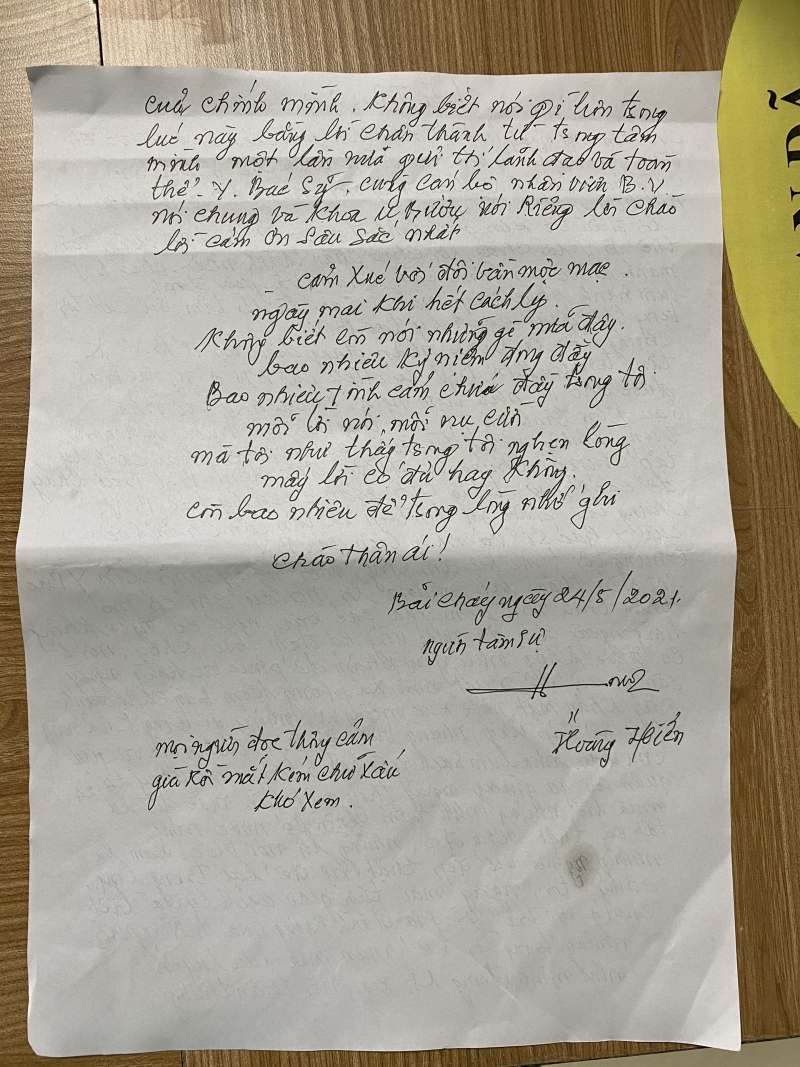 của chính mình. Không biết nói gì hơn trong
lúc này bằng lời chân thành từ trong tâm
mình một lần nữa gửi tới lãnh đạo và toàn
thể. Y. Bác Sỹ, cùng cán bộ nhân viên B.V
nói chung và khoa u bướu nói Riêng lời chào
lời cảm ơn sâu sắc nhất
cảm xúc với đôi vần mộc mạc.
ngày mai khi hết cách ly.
Không biết còn nói những gì nữa đây.
bao nhiêu kỷ niệm đong đầy
Bao nhiêu tình cảm chứa đầy trong tôi
mỗi lời nói, mỗi nụ cười
mà tôi như thấy trong tôi nghẹn lòng
mấy lời có đủ hay không.
còn bao nhiêu để trong lòng nhớ ghi
chào thân ái!
Bãi cháy ngày 24/5/2021.
người tâm sự
Hoàng Hiển
mọi người đọc thông cảm
già rồi mắt kém chữ xấu
khó xem.